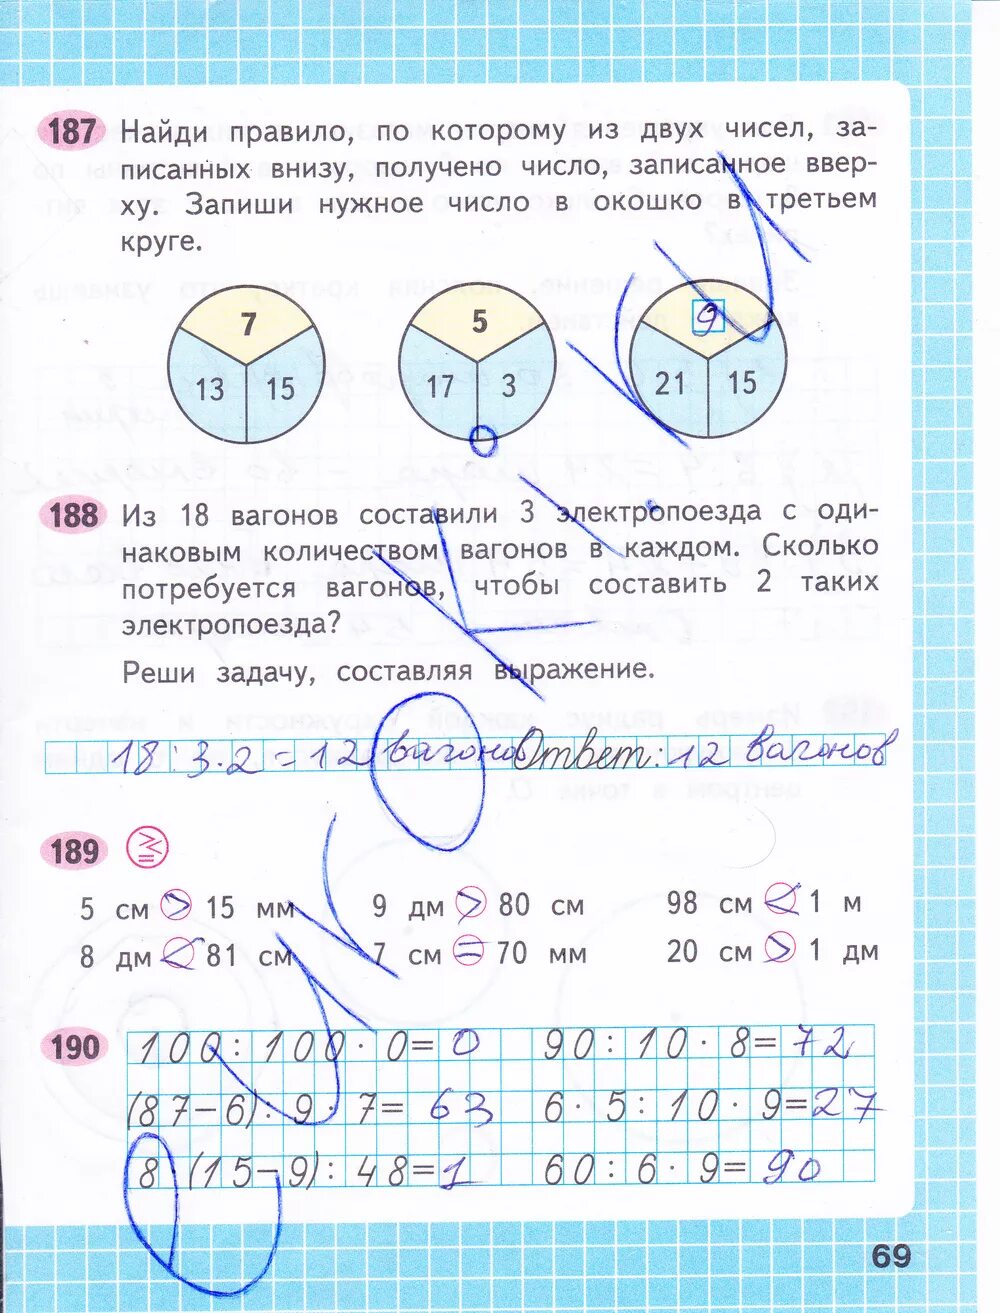 187 Найди правило, по которому из двух чисел, за-
писанных внизу, получено число, записанное ввер-
ху. Запиши нужное число в окошко в третьем
круге.
7
13 15
5
17 3
9
21 15
188 Из 18 вагонов составили 3 электропоезда с оди-
наковым количеством вагонов в каждом. Сколько
потребуется вагонов, чтобы составить 2 таких
электропоезда?
Реши задачу, составляя выражение.
18 : 3 · 2 = 12 вагонов Ответ: 12 вагонов
189
5 см > 15 мм 9 дм > 80 см 98 см < 1 м
8 дм < 81 см 7 см = 70 мм 20 см > 1 дм
190 100 : 100 · 0 = 0 90 : 10 · 8 = 72
(87 − 6) : 9 · 7 = 63 6 · 5 : 10 · 9 = 27
8 · (15 − 9) : 48 = 1 60 : 6 · 9 = 90
69